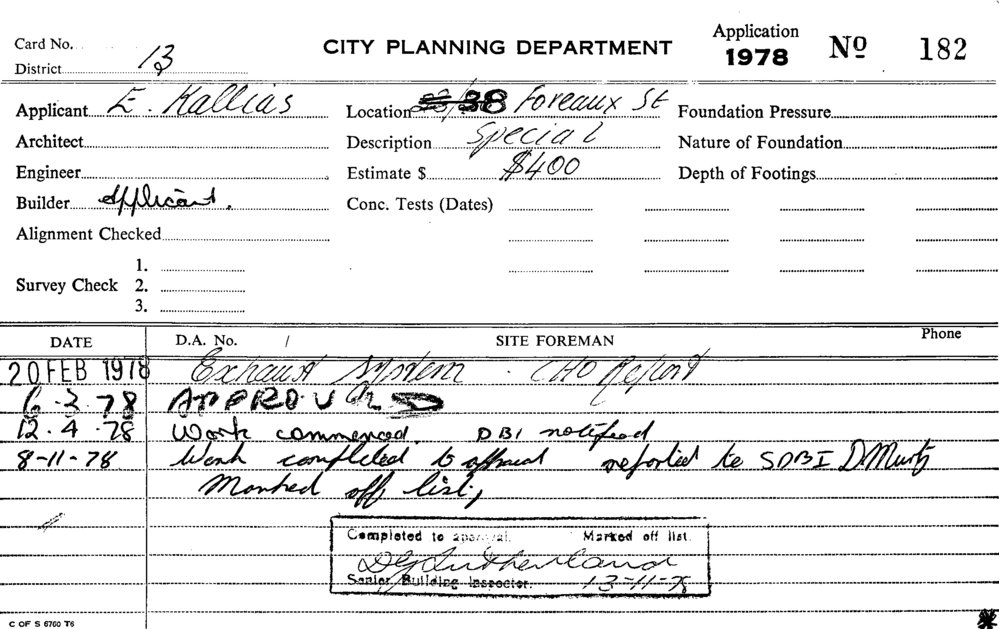 Card No.
District 13
CITY PLANNING DEPARTMENT
Application
1978 No 182
Applicant E. Kallias
Location 38 Foreaux St
Foundation Pressure
Architect
Description Special
Nature of Foundation
Engineer
Estimate $ $400
Depth of Footings
Builder applicant.
Conc. Tests (Dates)
Alignment Checked
Survey Check
1.
2.
3.
DATE D.A. No. / SITE FOREMAN Phone
20 FEB 1978 Exhaust System. CHO Report
6.3.78 APPROVED
12.4.78 Work commenced. DBI notified
8-11-78 Work completed to approval reported to SDBI D
Marked off list,
Completed to approval. Marked off list.
D G Sutherland
Senior Building Inspector. 13-11-78
C OF S 6760 T6